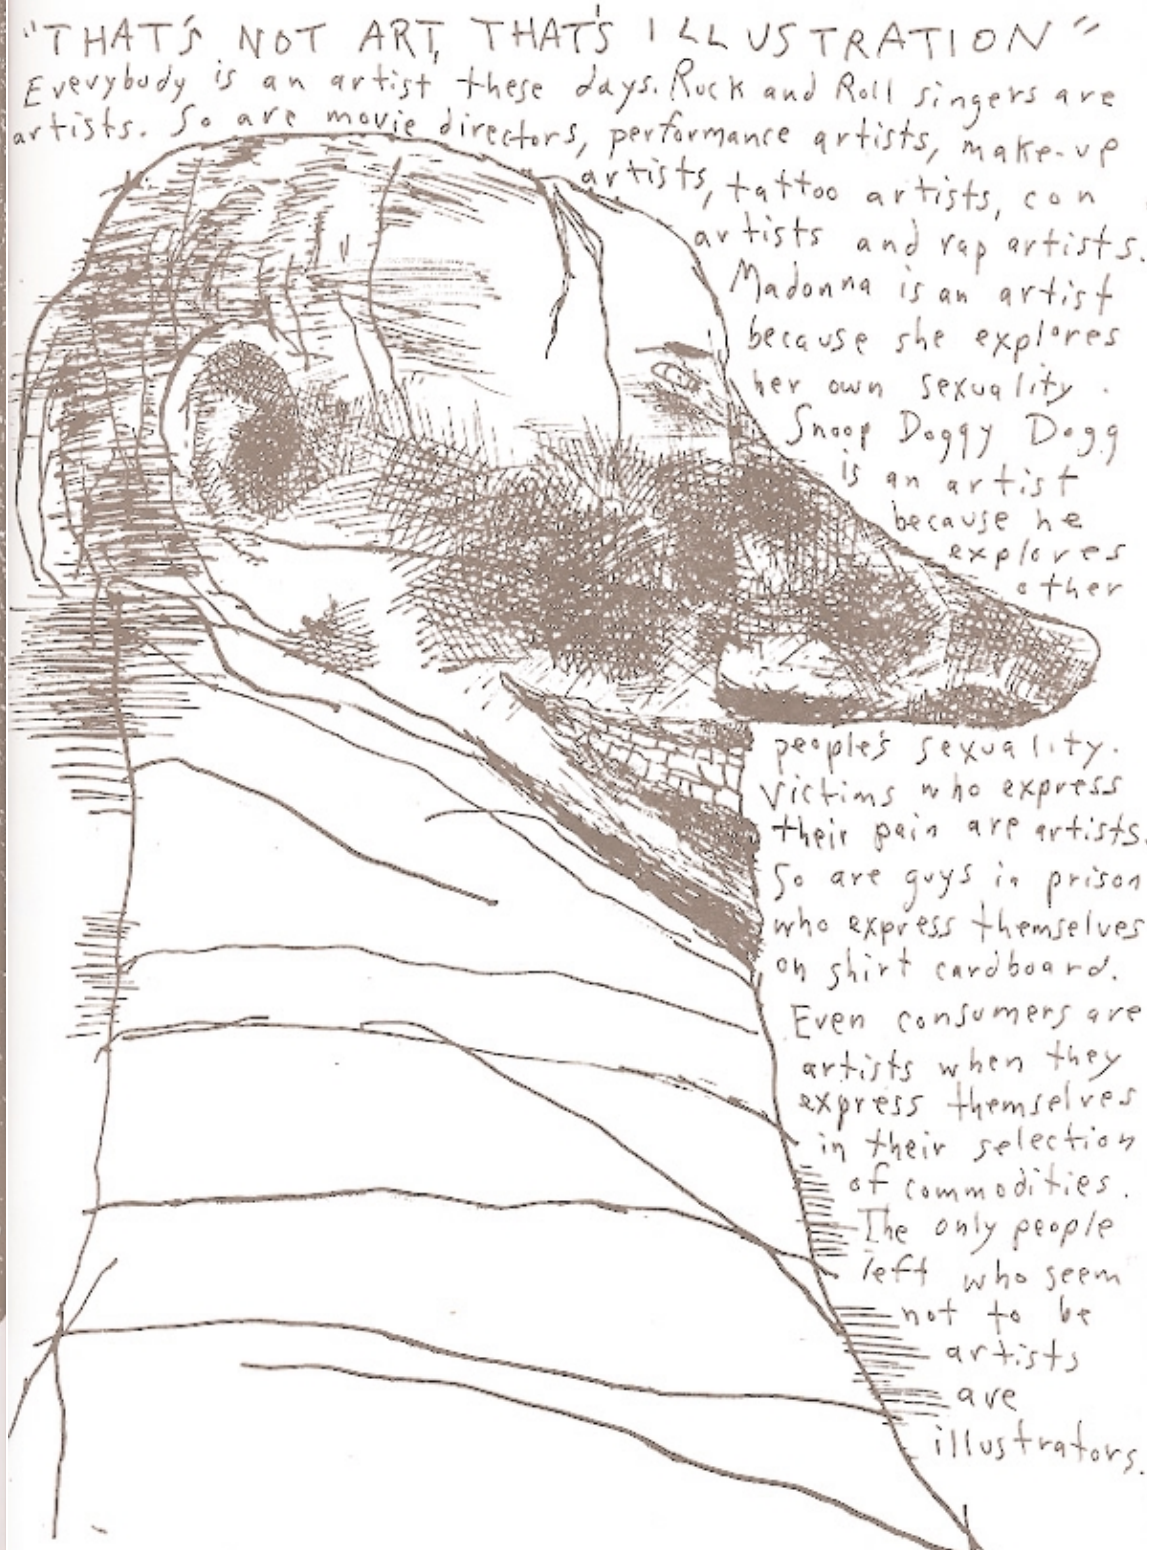 "THAT'S NOT ART, THAT'S ILLUSTRATION"
Everybody is an artist these days. Rock and Roll singers are
artists. So are movie directors, performance artists, make-up
artists, tattoo artists, con
artists and rap artists.
Madonna is an artist
because she explores
her own sexuality.
Snoop Doggy Dogg
is an artist
because he
explores
other
people's sexuality.
Victims who express
their pain are artists.
So are guys in prison
who express themselves
on shirt cardboard.
Even consumers are
artists when they
express themselves
in their selection
of commodities.
The only people
left who seem
not to be
artists
are
illustrators.